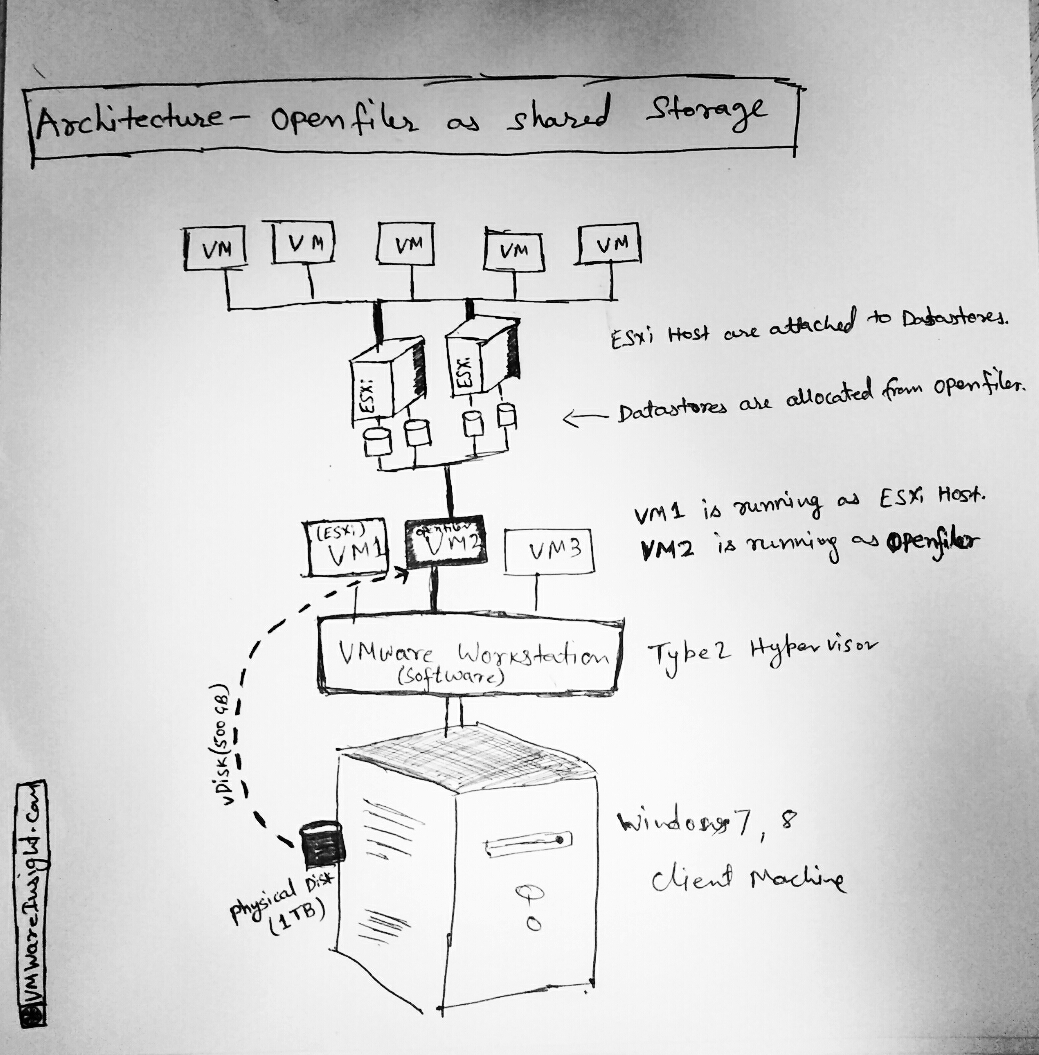 Architecture - Openfiler as shared Storage
VM VM VM VM VM
ESXi Host are attached to Datastores.
ESXi ESXi
← Datastores are allocated from openfiler.
VM1 is running as ESXi Host.
(ESXi) openfiler
VM1 VM2 VM3
VM2 is running as Openfiler
VMware Workstation
(Software)
Type2 Hypervisor
vDisk(500 GB)
Windows 7, 8
Client Machine
physical Disk
(1TB)
VMWareInsight.Com